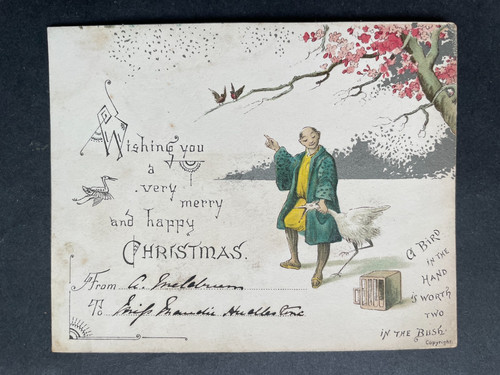 Wishing you
a
very
merry
and happy
CHRISTMAS.
From A.
To Miss Maudie
A BIRD
IN THE
HAND
IS WORTH
TWO
IN THE BUSH.
Copyright.